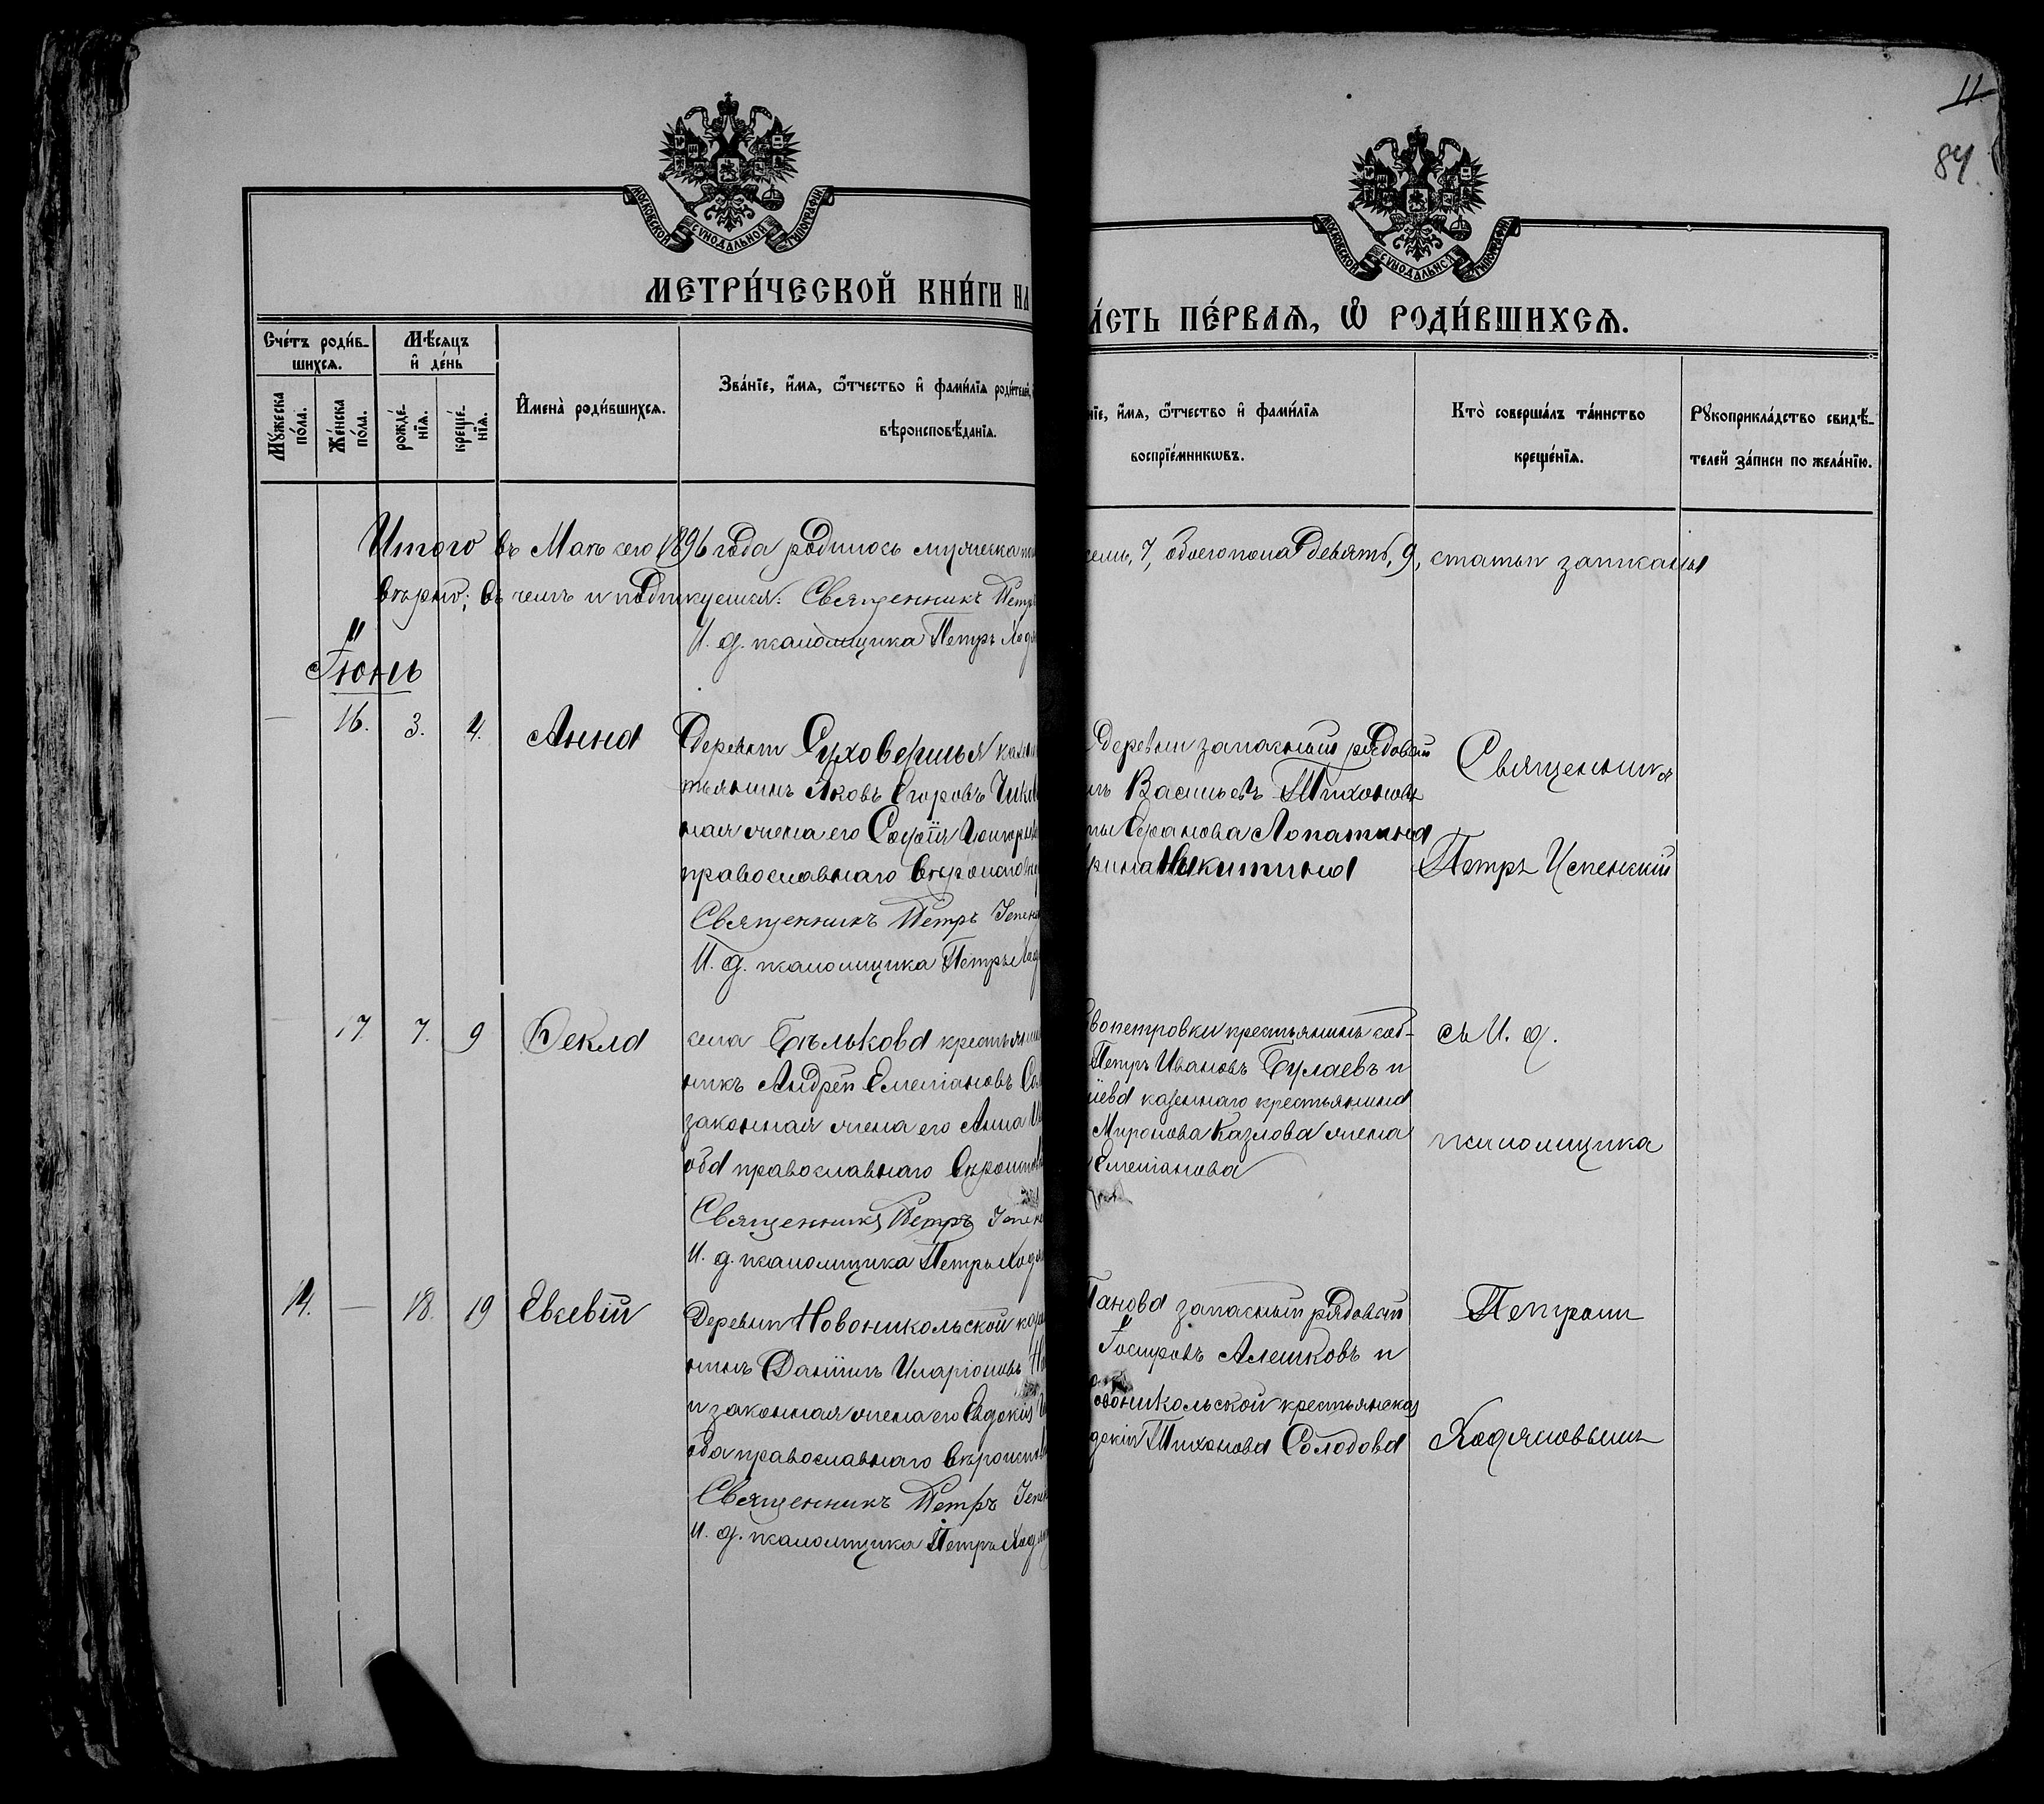 11
84
МОСКОВСКОЙ СѴНОДАЛЬНОЙ ТИПОГРАФІИ
МОСКОВСКОЙ СѴНОДАЛЬНОЙ ТИПОГРАФІИ
МЕТРИ́ЧЕСКОЙ КНИ́ГИ НА
А́СТЬ ПЕ́РВАЯ, Ѽ РОДИ́ВШИХСЯ.
Сче́тъ роди́в-
шихся.
Мѣ́сяцъ
и҆ де́нь
Мꙋ́жеска
по́ла.
Же́нска
по́ла.
рожде́-
нїя.
креще́-
нїя.
И҆мена̀ роди́вшихся.
Зва́нїе, и҆́мя, ѻ҆́тчество и҆ фами́лїя роди́телей,
вѣроисповѣ́данїя.
нїе, и҆́мя, ѻ҆́тчество и҆ фами́лїя
воспрїе́мникωвъ.
Кто̀ соверша́лъ та́инство
креще́нїя.
Рꙋкоприкла́дство свидѣ́-
телей за́писи по жела́нїю.
Итого въ Маѣ сего 1896 года родилось мужеска по
семь, 7, обоего пола девять, 9, статьи записаны
вѣрно; въ чемъ и подписуемся: Священникъ Петръ
И. д. псаломщика Петръ Ход
Іюнь
— 16. 3. 4. Анна
деревни Суховершья казен
тьянинъ Яковъ Егоровъ Чик
ная жена его Софія Григорье
православнаго вѣроисповѣ
Священникъ Петръ Успен
И. д. псаломщика Петръ Ход
деревни запасный рядовой
лъ Васильевъ Тихоновъ
Лопатина
рина Никитина
Священникъ
Петръ Успенскій
— 17 7. 9 Ѳекла
села Бѣлькова крестьянин
никъ Андрей Емеліановъ Сол
законная жена его Анна
оба православнаго вѣроиспов
Священникъ Петръ Успен
И. д. псаломщика Петръ Ходя
вопетровки крестьянинъ соб-
Петръ Ивановъ Булаевъ и
іева казеннаго крестьянина
Миронова Казлова жена
Емеліанова
съ И. д.
псаломщика
14. — 18. 19 Евсевій
Деревни Новоникольской каз
нинъ Даніилъ Иларіоновъ
и законная жена его Евдокія
оба православнаго вѣроиспов
Священникъ Петръ Успен
И. д. псаломщика Петръ Ходя
Панова запасный рядовой
Алешковъ и
овоникольской крестьянская
докія Тихонова Солодова
Петромъ
Ходяковымъ